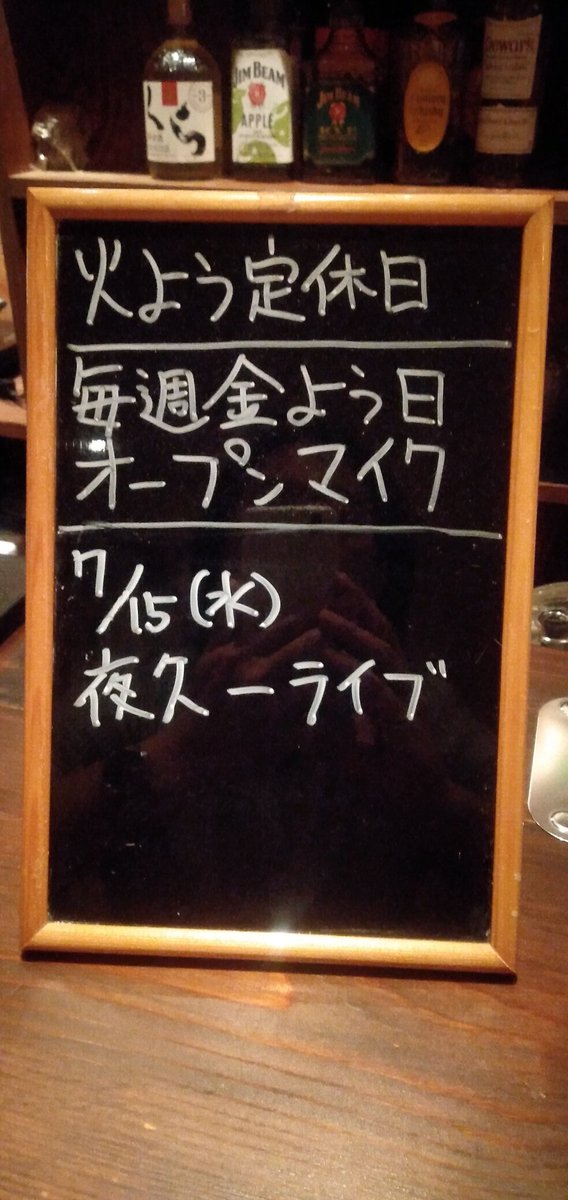 JIM BEAM
APPLE
JIM BEAM
Dewar's
火よう定休日
毎週金よう日
オープンマイク
7/15(水)
夜久一ライブ